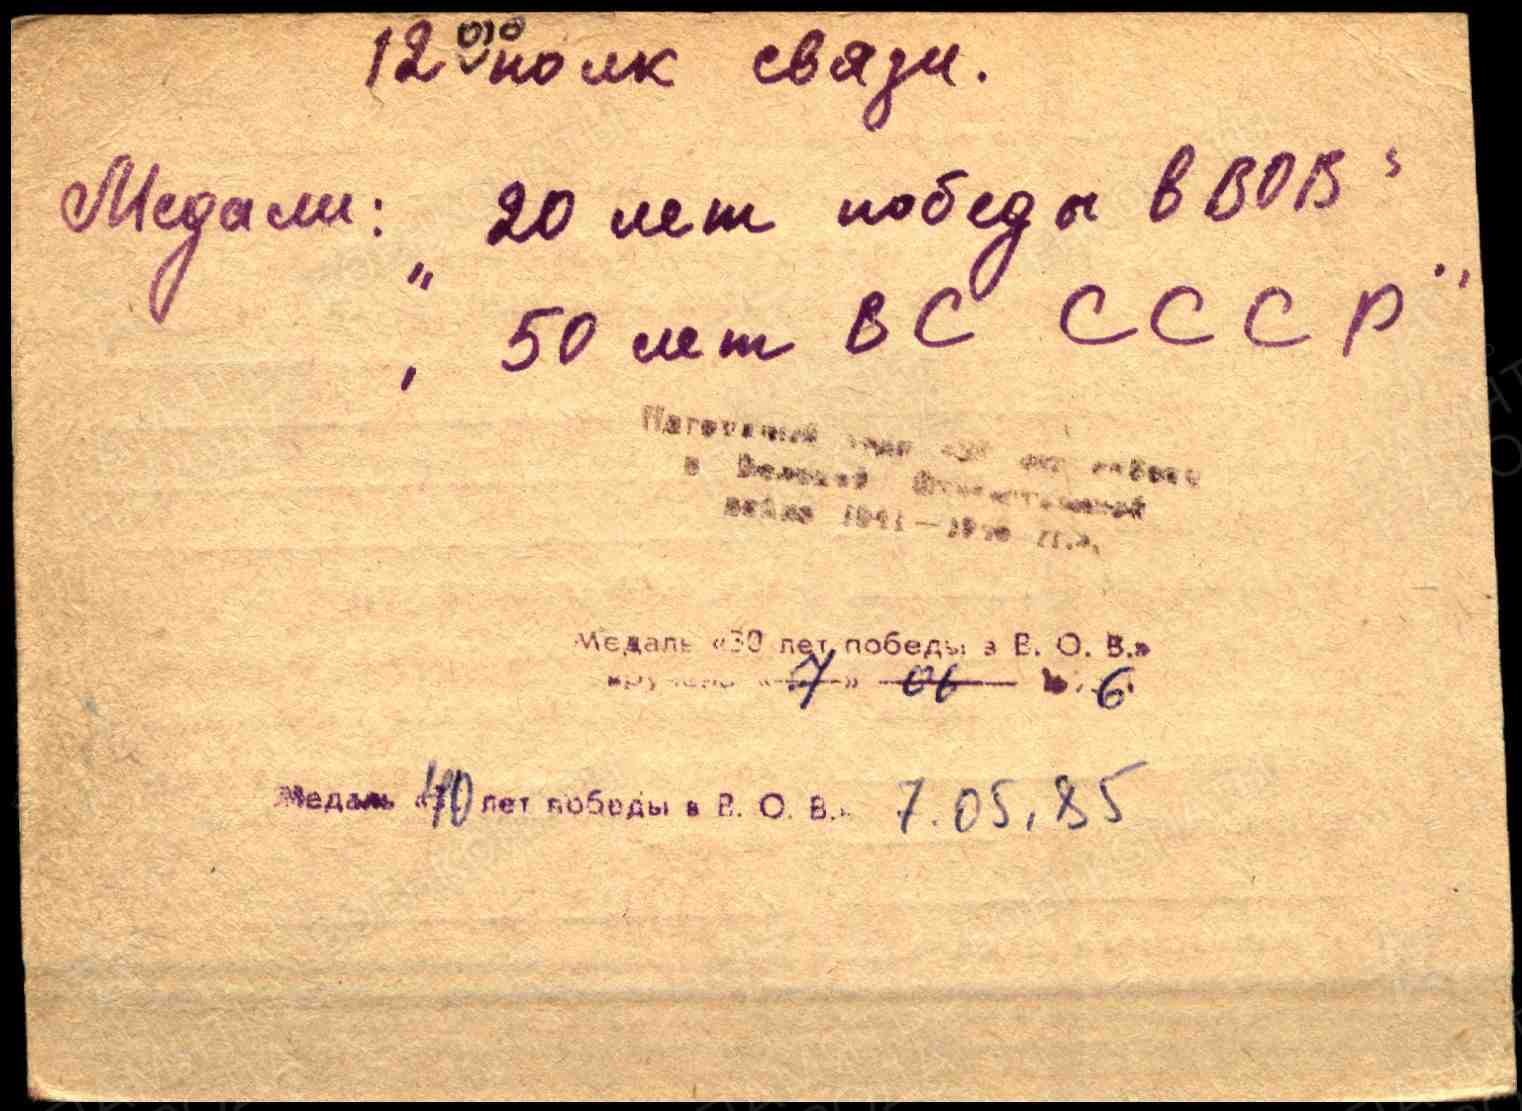 12 ого полк связи.
Медали: 20 лет победы в ВОВ"
" 50 лет ВС СССР"
в Великой Отечественной
войне 1941—19 гг.».
Медаль «30 лет победы в В. О. В.»
вручена «7» 06 6
Медаль «40 лет победы в В. О. В.» 7.05.85